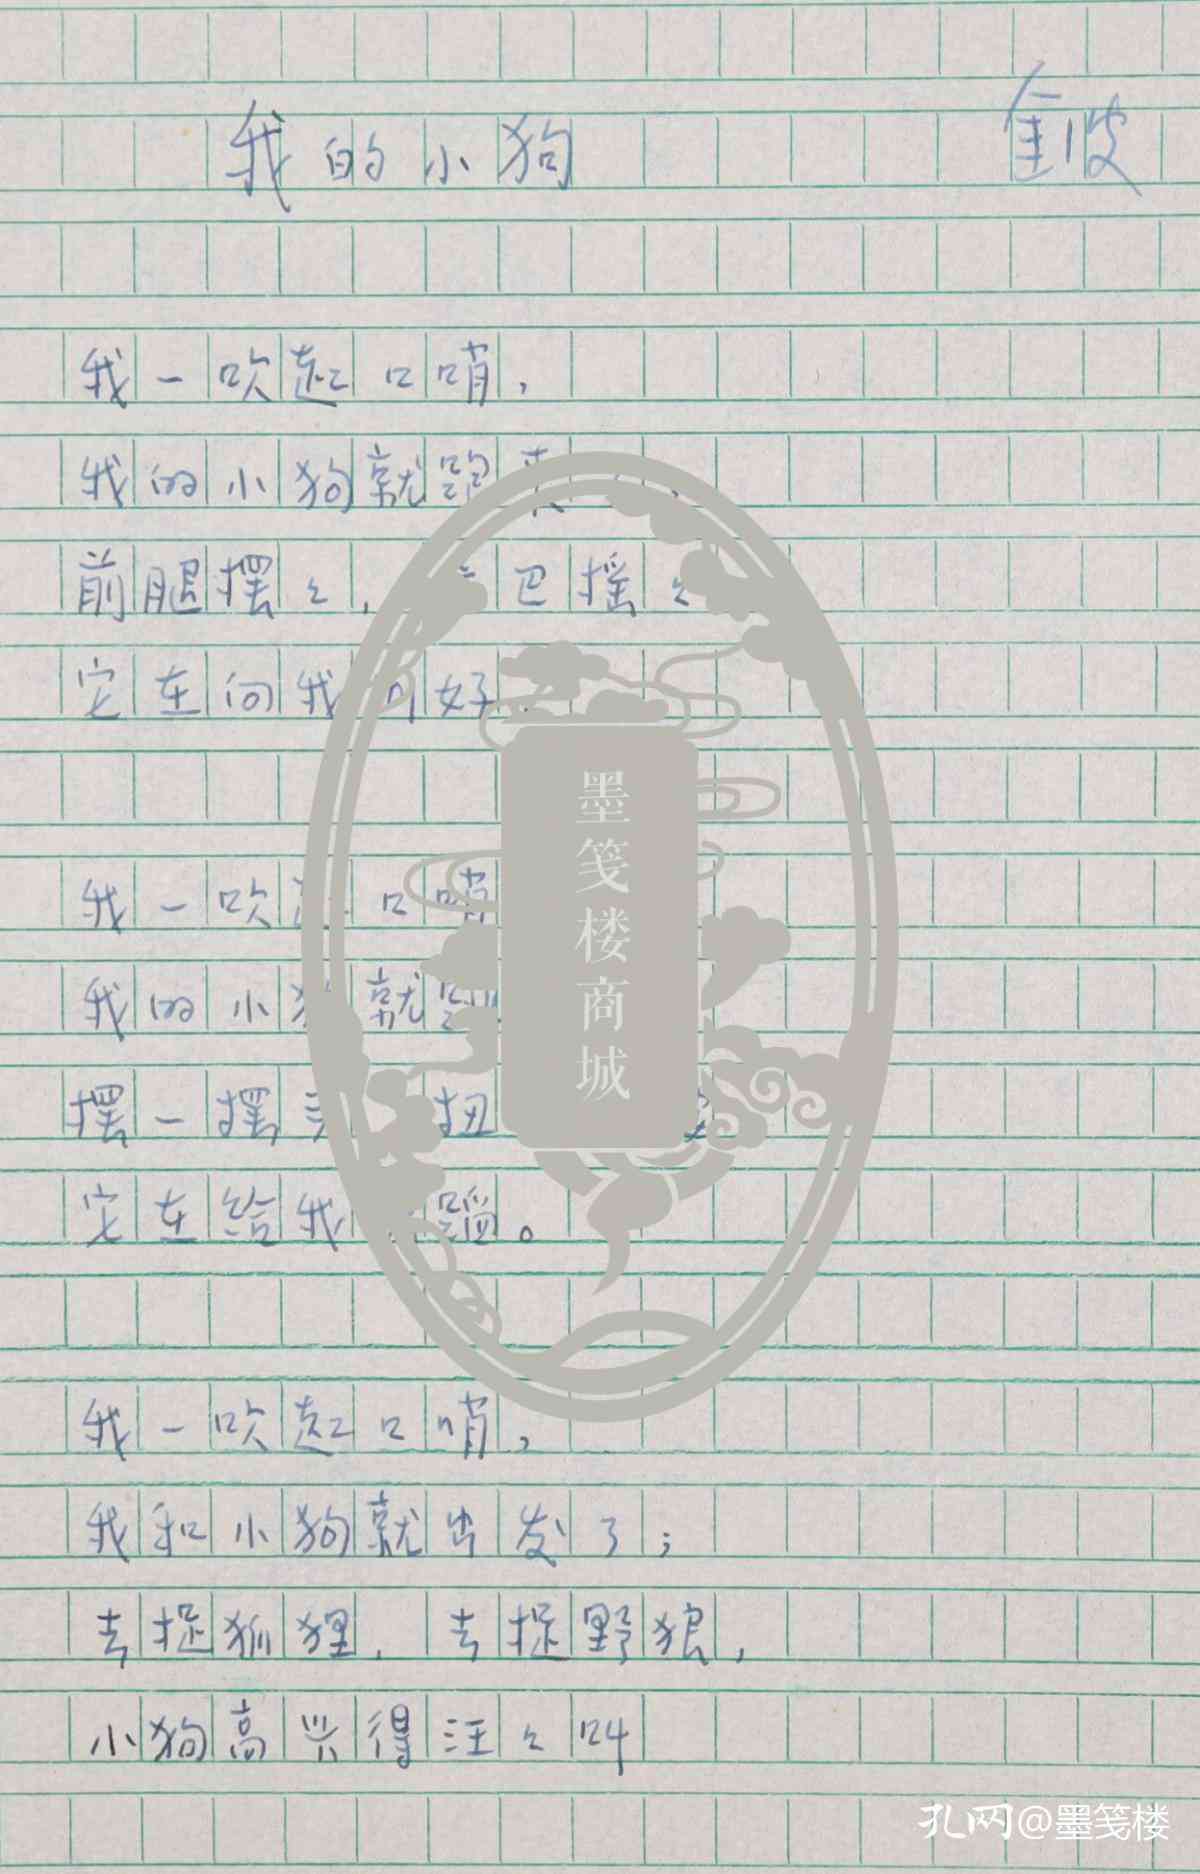 我的小狗 金波
我一吹起口哨，
我的小狗就跑来
前腿摆々，巴摇々
它在向我问好
我一吹起口哨
我的小狗就跑
摆一摆头扭
它在给我蹈。
我一吹起口哨，
我和小狗就出发了；
去捉狐狸，去捉野狼，
小狗高兴得汪々叫
墨笺楼商城
孔网@墨笺楼